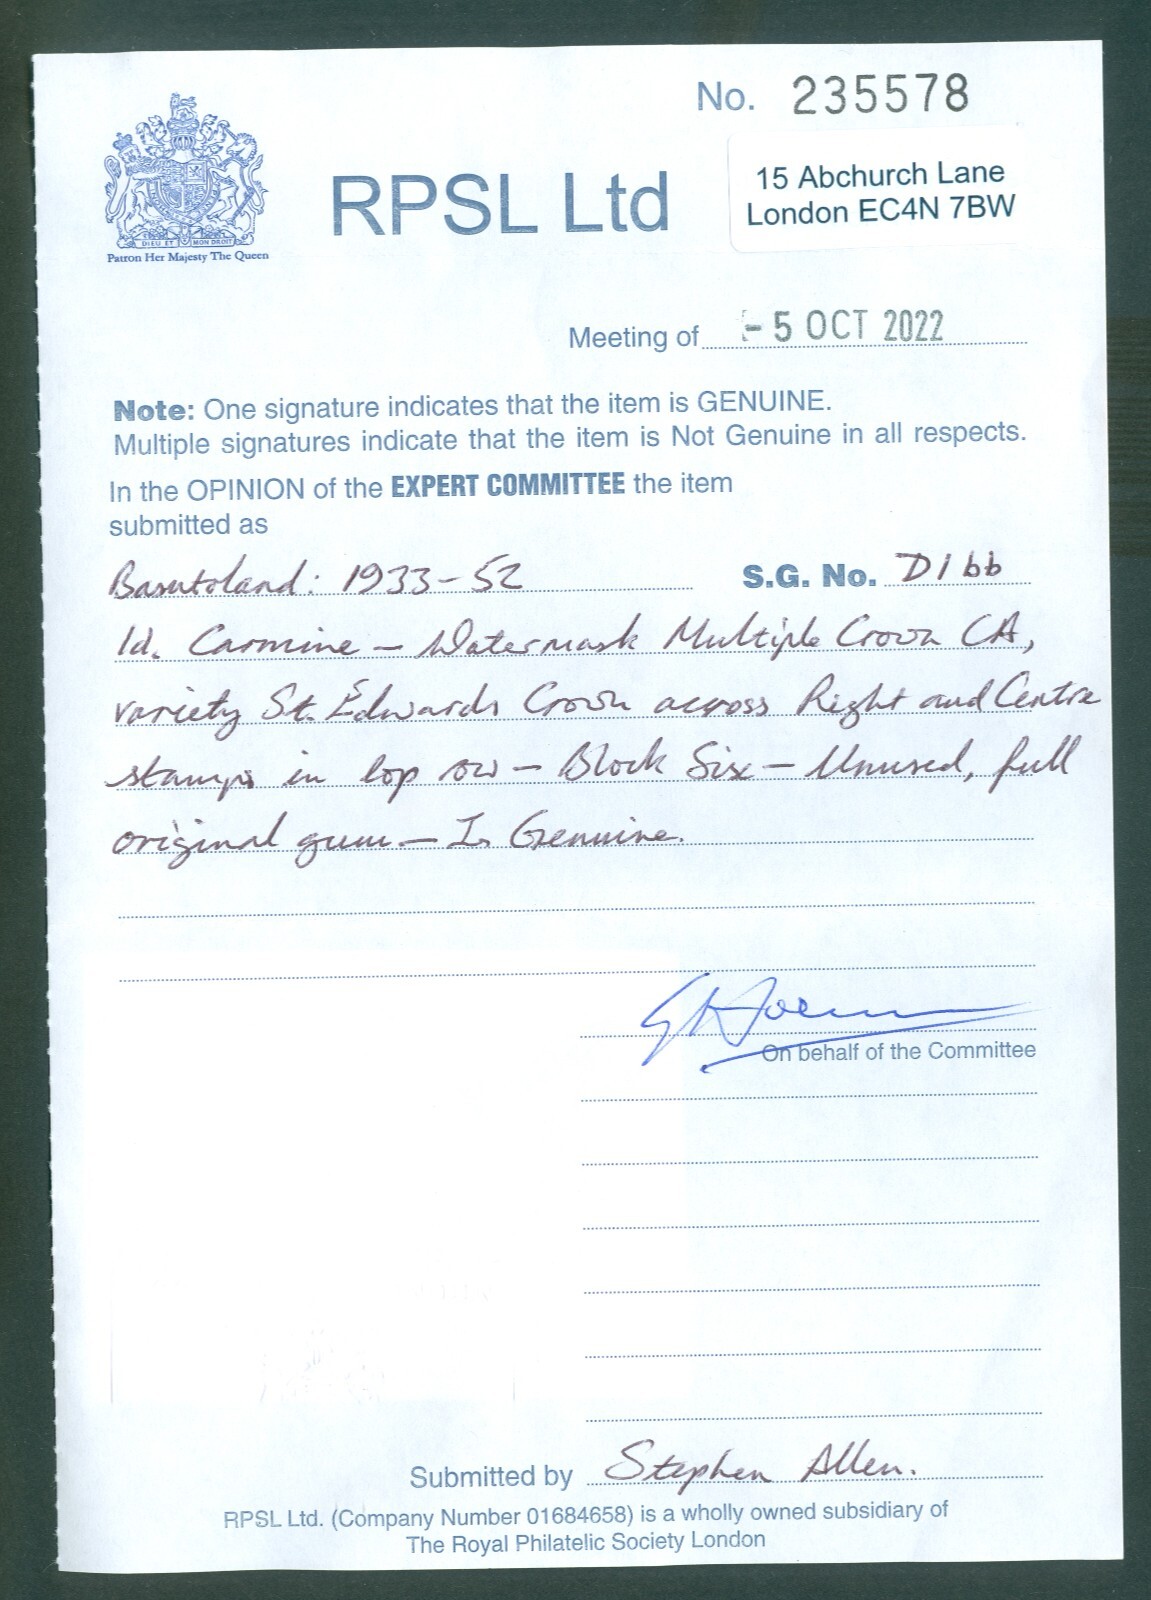 No. 235578
DIEU ET MON DROIT
Patron Her Majesty The Queen
RPSL Ltd
15 Abchurch Lane
London EC4N 7BW
Meeting of - 5 OCT 2022
Note: One signature indicates that the item is GENUINE.
Multiple signatures indicate that the item is Not Genuine in all respects.
In the OPINION of the EXPERT COMMITTEE the item
submitted as
Basutoland: 1933-52 S.G. No. D1bb
1d. Carmine - Watermark Multiple Crown CA,
variety St. Edwards Crown across Right and Centre
stamps in top row - Block Six - Unused, full
original gum - Is Genuine.
On behalf of the Committee
Submitted by Stephen Allen.
RPSL Ltd. (Company Number 01684658) is a wholly owned subsidiary of
The Royal Philatelic Society London